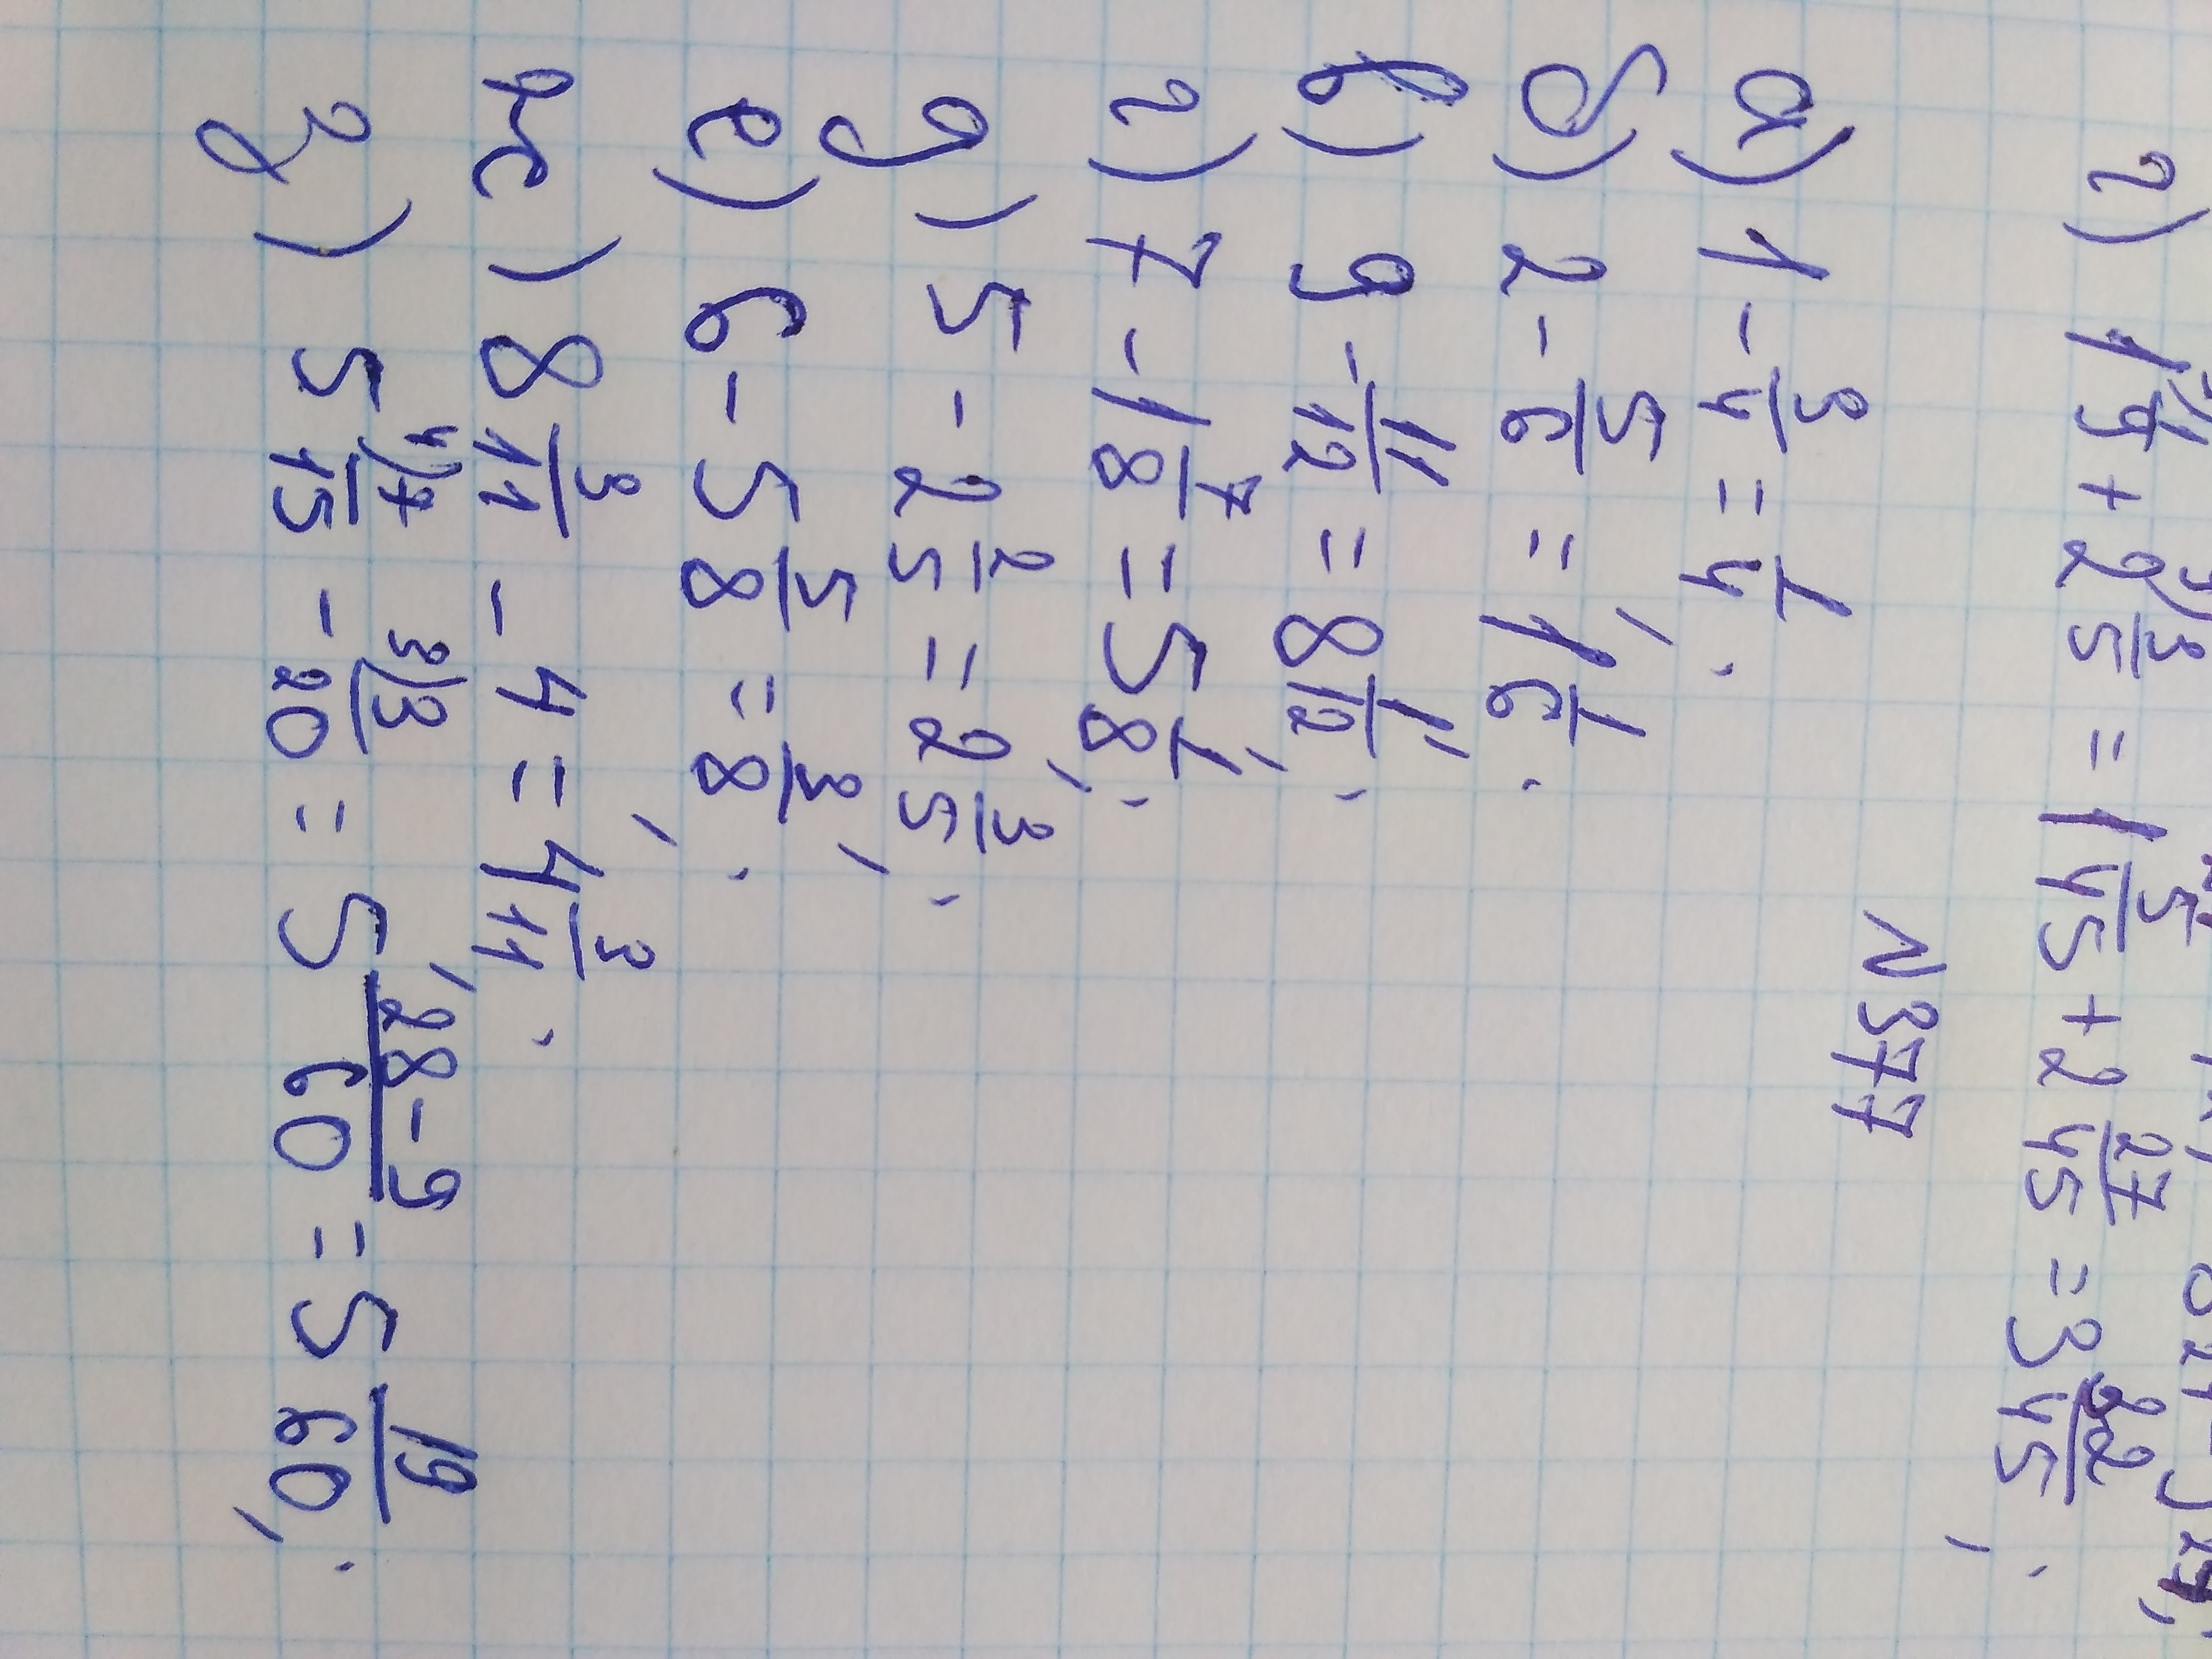 г) 1 1/9 + 2 3/5 = 1 5/45 + 2 27/45 = 3 32/45;
N 377
а) 1 - 3/4 = 1/4;
б) 2 - 5/6 = 1 1/6;
в) 9 - 11/12 = 8 1/12;
г) 7 - 1 7/8 = 5 1/8;
д) 5 - 2 2/5 = 2 3/5;
е) 6 - 5 5/8 = 3/8;
ж) 8 3/11 - 4 = 4 3/11;
з) 5 4)7/15 - 3)3/20 = 5 28-9/60 = 5 19/60;